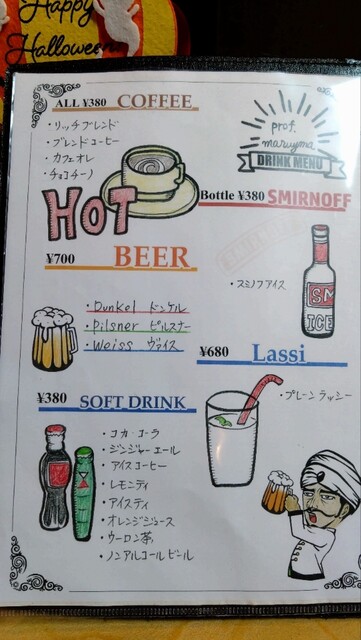 Happy
Halloween
ALL ¥380 COFFEE
・リッチブレンド
・ブレンドコーヒー
・カフェオレ
・チョコチーノ
HOT
prof.
maruyma
DRINK MENU
Bottle ¥380 SMIRNOFF
・スミノフアイス
SM
ICE
¥700 BEER
・Dunkel ドンケル
・Pilsner ピルスナー
・Weiss ヴァイス
¥680 Lassi
・プレーンラッシー
¥380 SOFT DRINK
・コカ・コーラ
・ジンジャーエール
・アイスコーヒー
・レモンティ
・アイスティ
・オレンジジュース
・ウーロン茶
・ノンアルコールビール